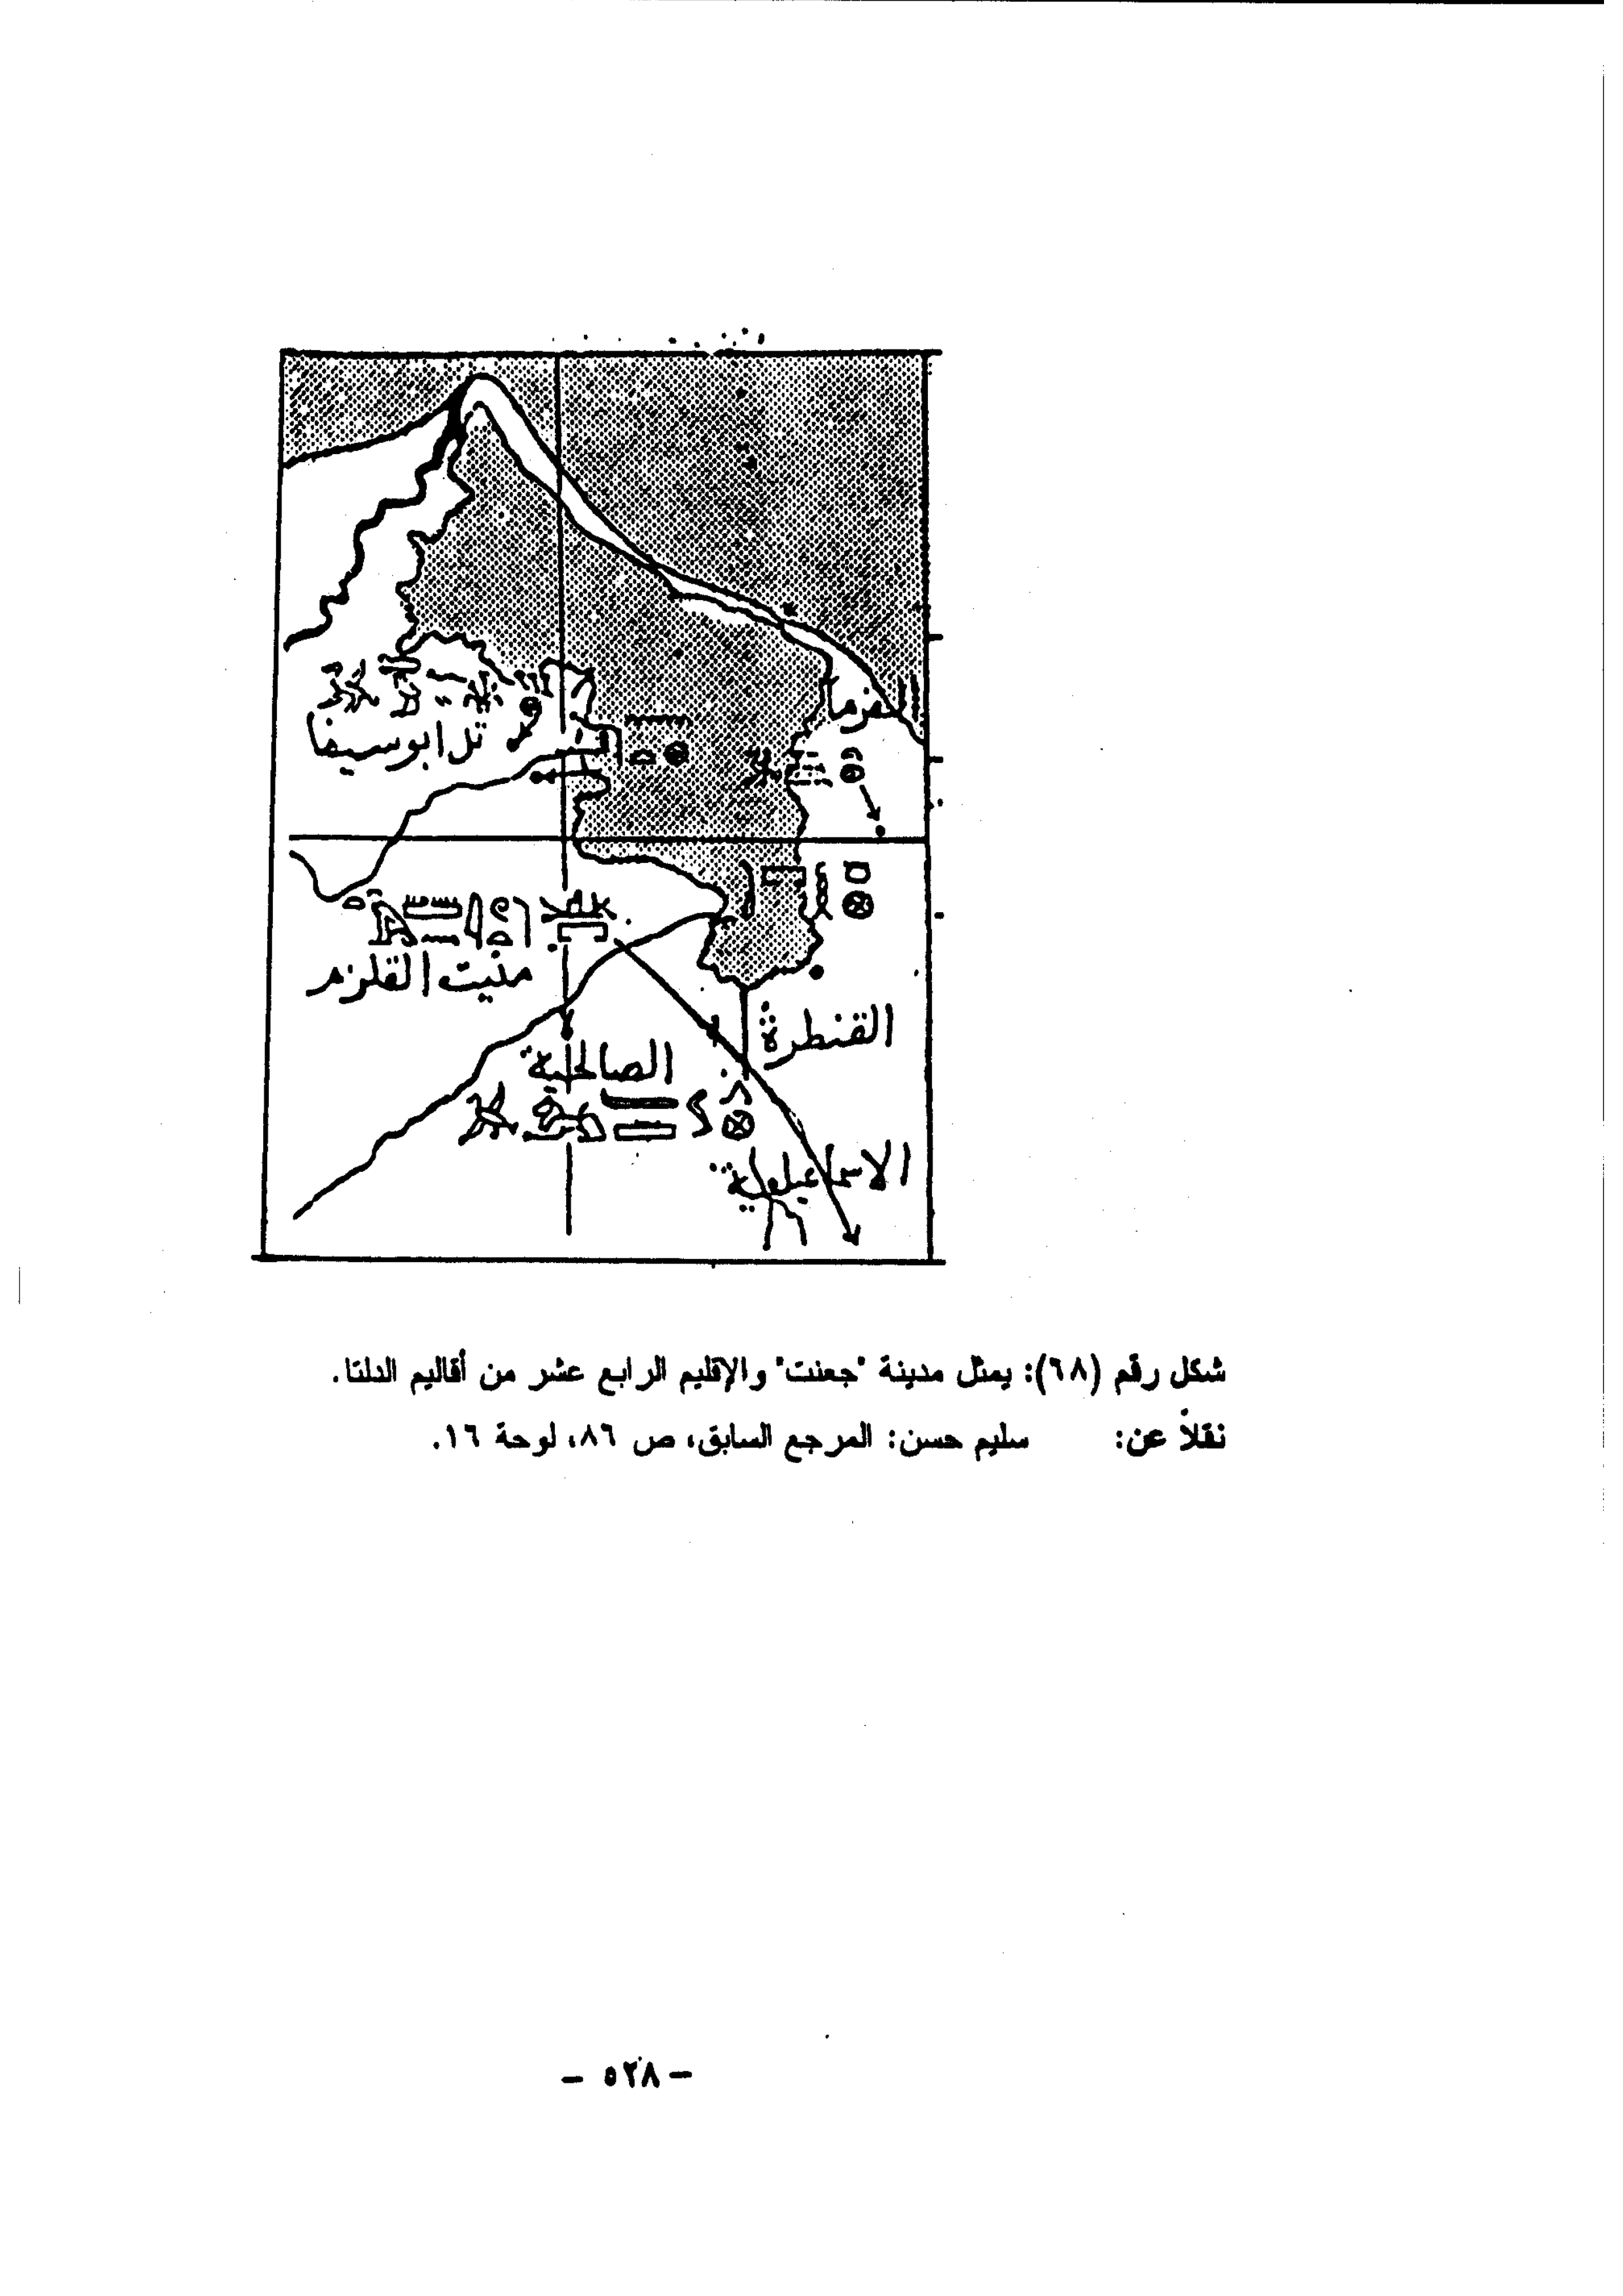 الفرما
تل ابو سيفا
منيت القلزم
القنطرة
الصالحية
الاسماعيلية
شكل رقم (٦٨): يمثل مدينة "جعنت" والإقليم الرابع عشر من أقاليم الدلتا.
نقلاً عن: سليم حسن: المرجع السابق، ص ٨٦، لوحة ١٦.
- ٥٢٨ -